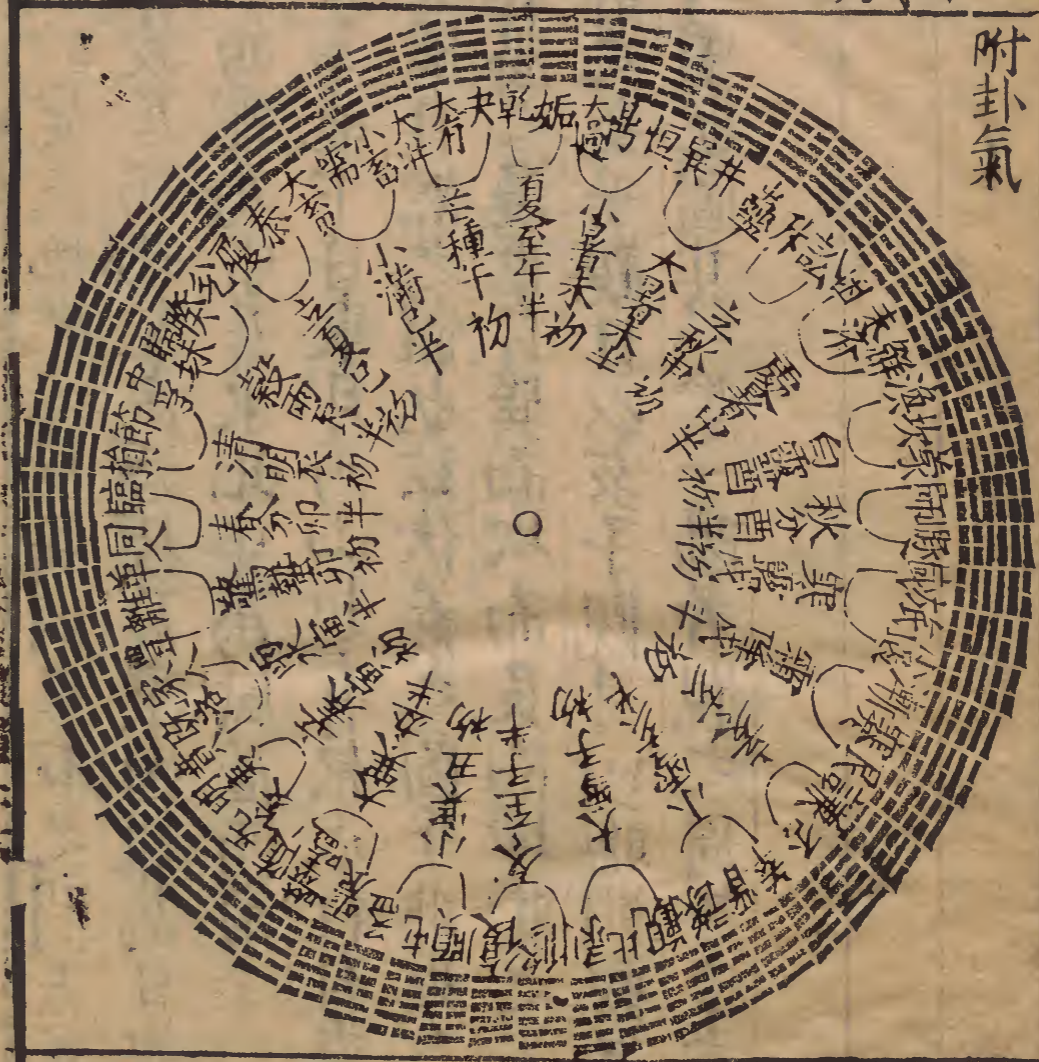 附卦氣
乾
姤
大過
鼎
恒
巽
井
蠱
升
訟
困
未濟
解
渙
坎
蒙
師
遯
咸
旅
小過
漸
蹇
艮
謙
否
萃
晉
豫
觀
比
剝
坤
復
頤
屯
益
震
噬嗑
隨
无妄
明夷
賁
既濟
家人
豐
離
革
同人
臨
損
節
中孚
歸妹
睽
兌
履
泰
大畜
需
小畜
大壯
大有
夬
夏至午半
小暑未初
大暑未半
立秋申初
處暑申半
白露酉初
秋分酉半
寒露戌初
霜降戌半
立冬亥初
小雪亥半
大雪子初
冬至子半
小寒丑初
大寒丑半
立春寅初
雨水寅半
驚蟄卯初
春分卯半
清明辰初
穀雨辰半
立夏巳初
小滿巳半
芒種午初